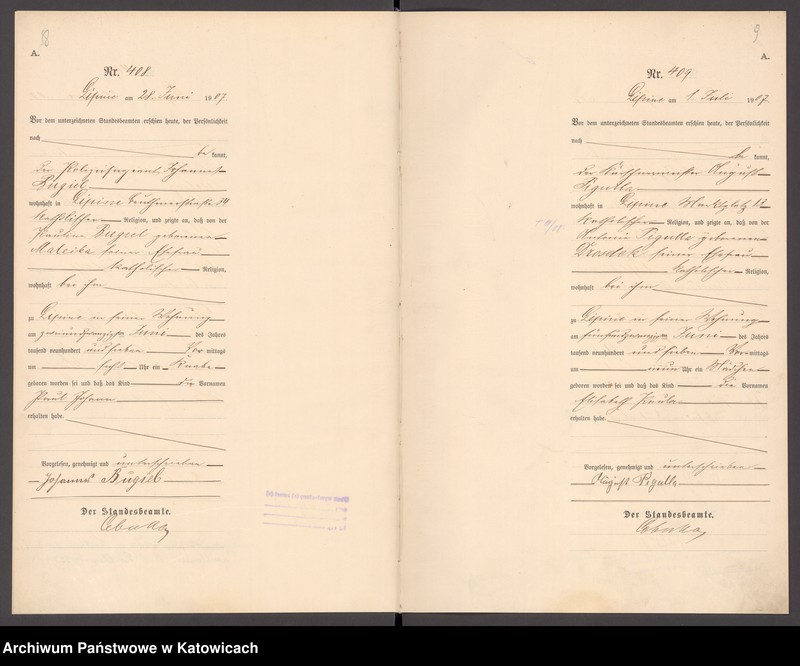 8
A.
Nr. 408
Lipine am 28. Juni 1907
Vor dem unterzeichneten Standesbeamten erschien heute, der Persönlichkeit
nach
be kannt,
der Polizeisergeant Johannes
Bugiel
wohnhaft in Lipine Beuthenerstraße 34
katholischer Religion, und zeigte an, daß von der
Pauline Bugiel geborenen
Maleika seiner Ehefrau
katholischer Religion,
wohnhaft bei ihm
zu Lipine in seiner Wohnung
am zweiundzwanzigsten Juni des Jahres
tausend neunhundert und sieben Vor mittags
um sechs Uhr ein Knabe
geboren worden sei und daß das Kind die Vornamen
Paul Johann
erhalten habe.
Vorgelesen, genehmigt und unterschrieben
Johannes Bugiel
Der Standesbeamte.
9
A.
Nr. 409
Lipine am 1. Juli 1907.
Vor dem unterzeichneten Standesbeamten erschien heute, der Persönlichkeit
nach
be kannt,
der August
Pigulla
wohnhaft in Lipine Marktplatz 12
katholischer Religion, und zeigte an, daß von der
Antonie Pigulla geborenen
Drosdek seiner Ehefrau
katholischer Religion,
wohnhaft bei ihm
zu Lipine in seiner Wohnung
am fünfundzwanzigsten Juni des Jahres
tausend neunhundert und sieben Vor mittags
um neun Uhr ein Mädchen
geboren worden sei und daß das Kind die Vornamen
Elisabeth Paula
erhalten habe.
Vorgelesen, genehmigt und unterschrieben
August Pigulla
Der Standesbeamte.
Archiwum Państwowe w Katowicach